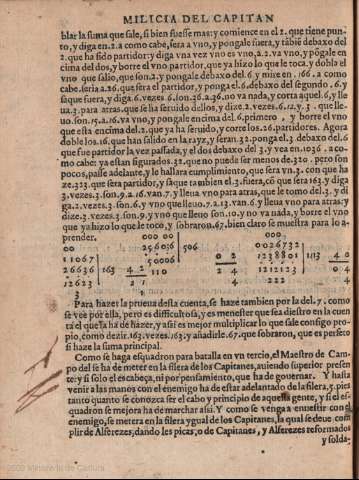 MILICIA DEL CAPITAN
blar la suma que sale, si bien fuesse mas: y comience en el 2. que tiene pun-
to, y diga en .2. a como cabe, sera a vno, y pongale fuera, y tãbiẽ debaxo del
.2. que ha sido partidor: y diga vna vez vno es vno, a .2. va vno, y põgale en
cima del dos, y borre el vno partidor, que ya hizo lo que le toca. y dobla el
vno que salio, que son .2. y pongale debaxo del 6 y mire en .166. a como
cabe. seria a 26. que sera el partidor, y ponga el 6. debaxo del segundo .6. y
saque fuera, y diga 6. vezes 6. son 36. a 36. no va nada, y corta aquel 6. y lle
ua 3. para atras: que se ha seruido dellos, y dize .2. vezes .6. 12. y 3. que lle-
uo. son .15. a .16. va vno, y pongale encima del 6. primero , y borre el vno
que esta encima del .2. que ya ha seruido, y corre los .26. partidores. Agora
doble los .16. que han salido en la ryz, y seran .32. ponga el 2. debaxo del 6
que fue partidor la vez passada, y el dos debaxo del 3. y vea en .1036. a co-
mo cabe: ya estan sigurados .32. que no puede ser menos de 320. pero son
pocos, passe adelante, y lo hallara cumplimiento, que sera vn .3. con que ha
ze .323. que sera partidor, y saque tambien el .3. fuera, cõ que sera 163. y diga
3. vezes .3. son .9. a .16. van .7. y lleua vno para atras, que le tomo del .3. y di
ga .2. vezes .3. son .6. y vno que lleuo .7. a .13. van .6 y lleua vno para atras: y
dize .3. vezes .3. son .9. y vno que lleuo son .10. y no va nada, y borre el vno
que ya hizo lo que le toco, y sobraron .67. bien claro se muestra para lo a-
prender.
000 00 00 00
00 25606 506 0026732
11067 50006 0 2 1238801 1113 4 0
26636 163 4 2 110 2 4 1212123 0 4
12623 2 1 222 4
3
Para hazer la prueua desta cuenta, se haze tambien por la del .7. como
se vee por ella, pero es difficultosa, y es menester que sea diestro en la cuen
ta el que la ha de hazer, y assi es mejor multiplicar lo que sale consigo pro-
pio, como dezir .163. vezes .163. y añadirle .67. que sobraron, que es perfeto
si haze la suma principal.
Como se haga esquadron para batalla en vn tercio, el Maestro de Cam-
po del se ha de meter en la filera de los Capitanes, auiendo superior presen
te: y si solo el es cabeça, ni por pensamiento, que ha de gouernar. Y hasta
venir a las manos con el enemigo ha de estar adelantado de la filera, 5. pies
tanto quanto se conozca ser el cabo y principio de aquella gente, y si el es-
quadron se mejora ha de marchar assi. Y como se venga a enuestir con el
enemigo, se metera en la filera ygual de los Capitanes, la qual se deue com
plir de Alferezes, dando les picas, o de Capitanes, y Alferezes reformados
y solda-
2009 Ministerio de Cultura